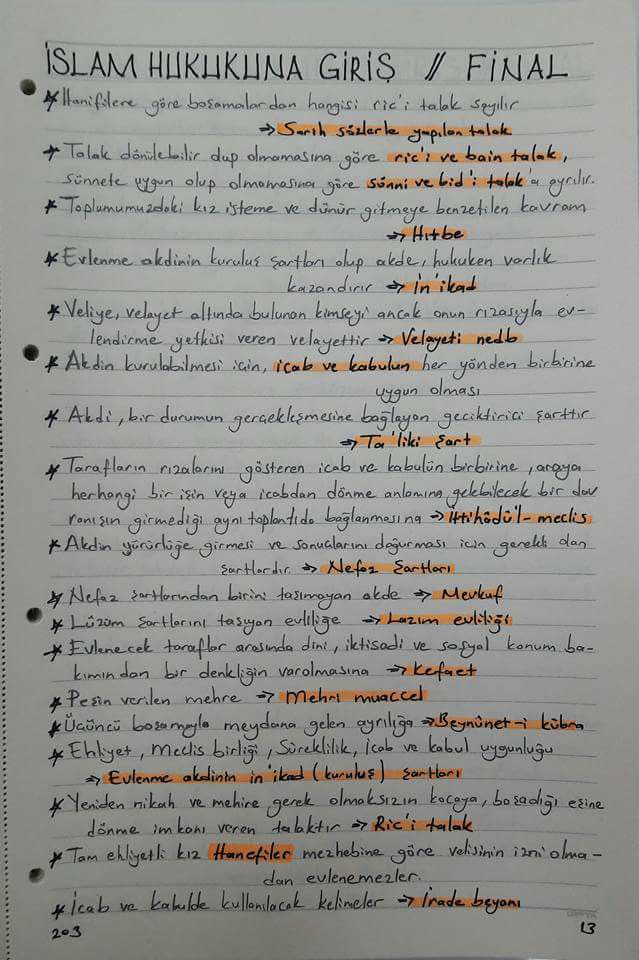 İSLAM HUKUKUNA GİRİŞ // FİNAL
* Hanifilere göre boşamalardan hangisi ric'i talak sayılır
→ Sarih sözlerle yapılan talak
* Talak dönülebilir olup olmamasına göre ric'i ve bain talak,
sünnete uygun olup olmamasına göre sünni ve bid'i talak'a ayrılır.
* Toplumumuzdaki kız isteme ve dünür gitmeye benzetilen kavram
→ Hıtbe
* Evlenme akdinin kuruluş şartları olup akde, hukuken varlık
kazandırır → İn'ikad
* Veliye, velayet altında bulunan kimseyi ancak onun rızasıyla ev-
lendirme yetkisi veren velayettir → Velayeti nedb
* Akdin kurulabilmesi için, icab ve kabulun her yönden birbirine
uygun olması
* Akdi, bir durumun gerçekleşmesine bağlayan geciktirici şarttır
→ Ta'liki Şart
* Tarafların rızalarını gösteren icab ve kabulün birbirine, araya
herhangi bir işin veya icabdan dönme anlamına gelebilecek bir dav
ranışın girmediği aynı toplantıda bağlanmasına → İttihâdü'l-meclis
* Akdin yürürlüğe girmesi ve sonuçlarını doğurması için gerekli olan
şartlardır. → Nefaz Şartları
* Nefaz şartlarından birini taşımayan akde → Mevkuf
* Lüzüm şartlarını taşıyan evliliğe → Lazım evliliği
* Evlenecek taraflar arasında dini, iktisadi ve sosyal konum ba-
kımından bir denkliğin varolmasına → Kefaet
* Peşin verilen mehre → Mehri muaccel
* Üçüncü boşamayla meydana gelen ayrılığa → Beynûnet-i kübra
* Ehliyet, Meclis birliği, Süreklilik, İcab ve kabul uygunluğu
→ Evlenme akdinin in'ikad (kuruluş) Şartları
* Yeniden nikah ve mehire gerek olmaksızın kocaya, boşadığı eşine
dönme imkanı veren talaktır → Ric'i talak
* Tam ehliyetli kız Hanefiler mezhebine göre velisinin izni olma-
dan evlenemezler.
* İcab ve kabulde kullanılacak kelimeler → İrade beyanı
203 13